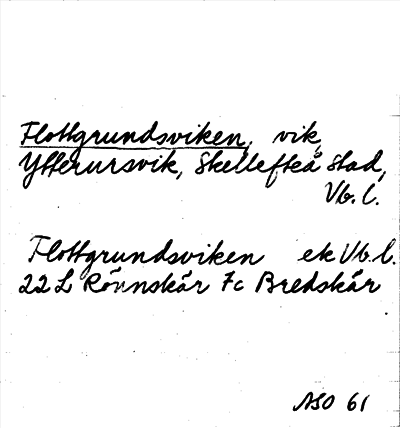 Flottgrundsviken, vik,
Ytterursvik, Skellefteå stad,
Vb. l.
Flottgrundsviken ek Vb. l.
22 L Rönnskär 7c Bredskär
ASO 61